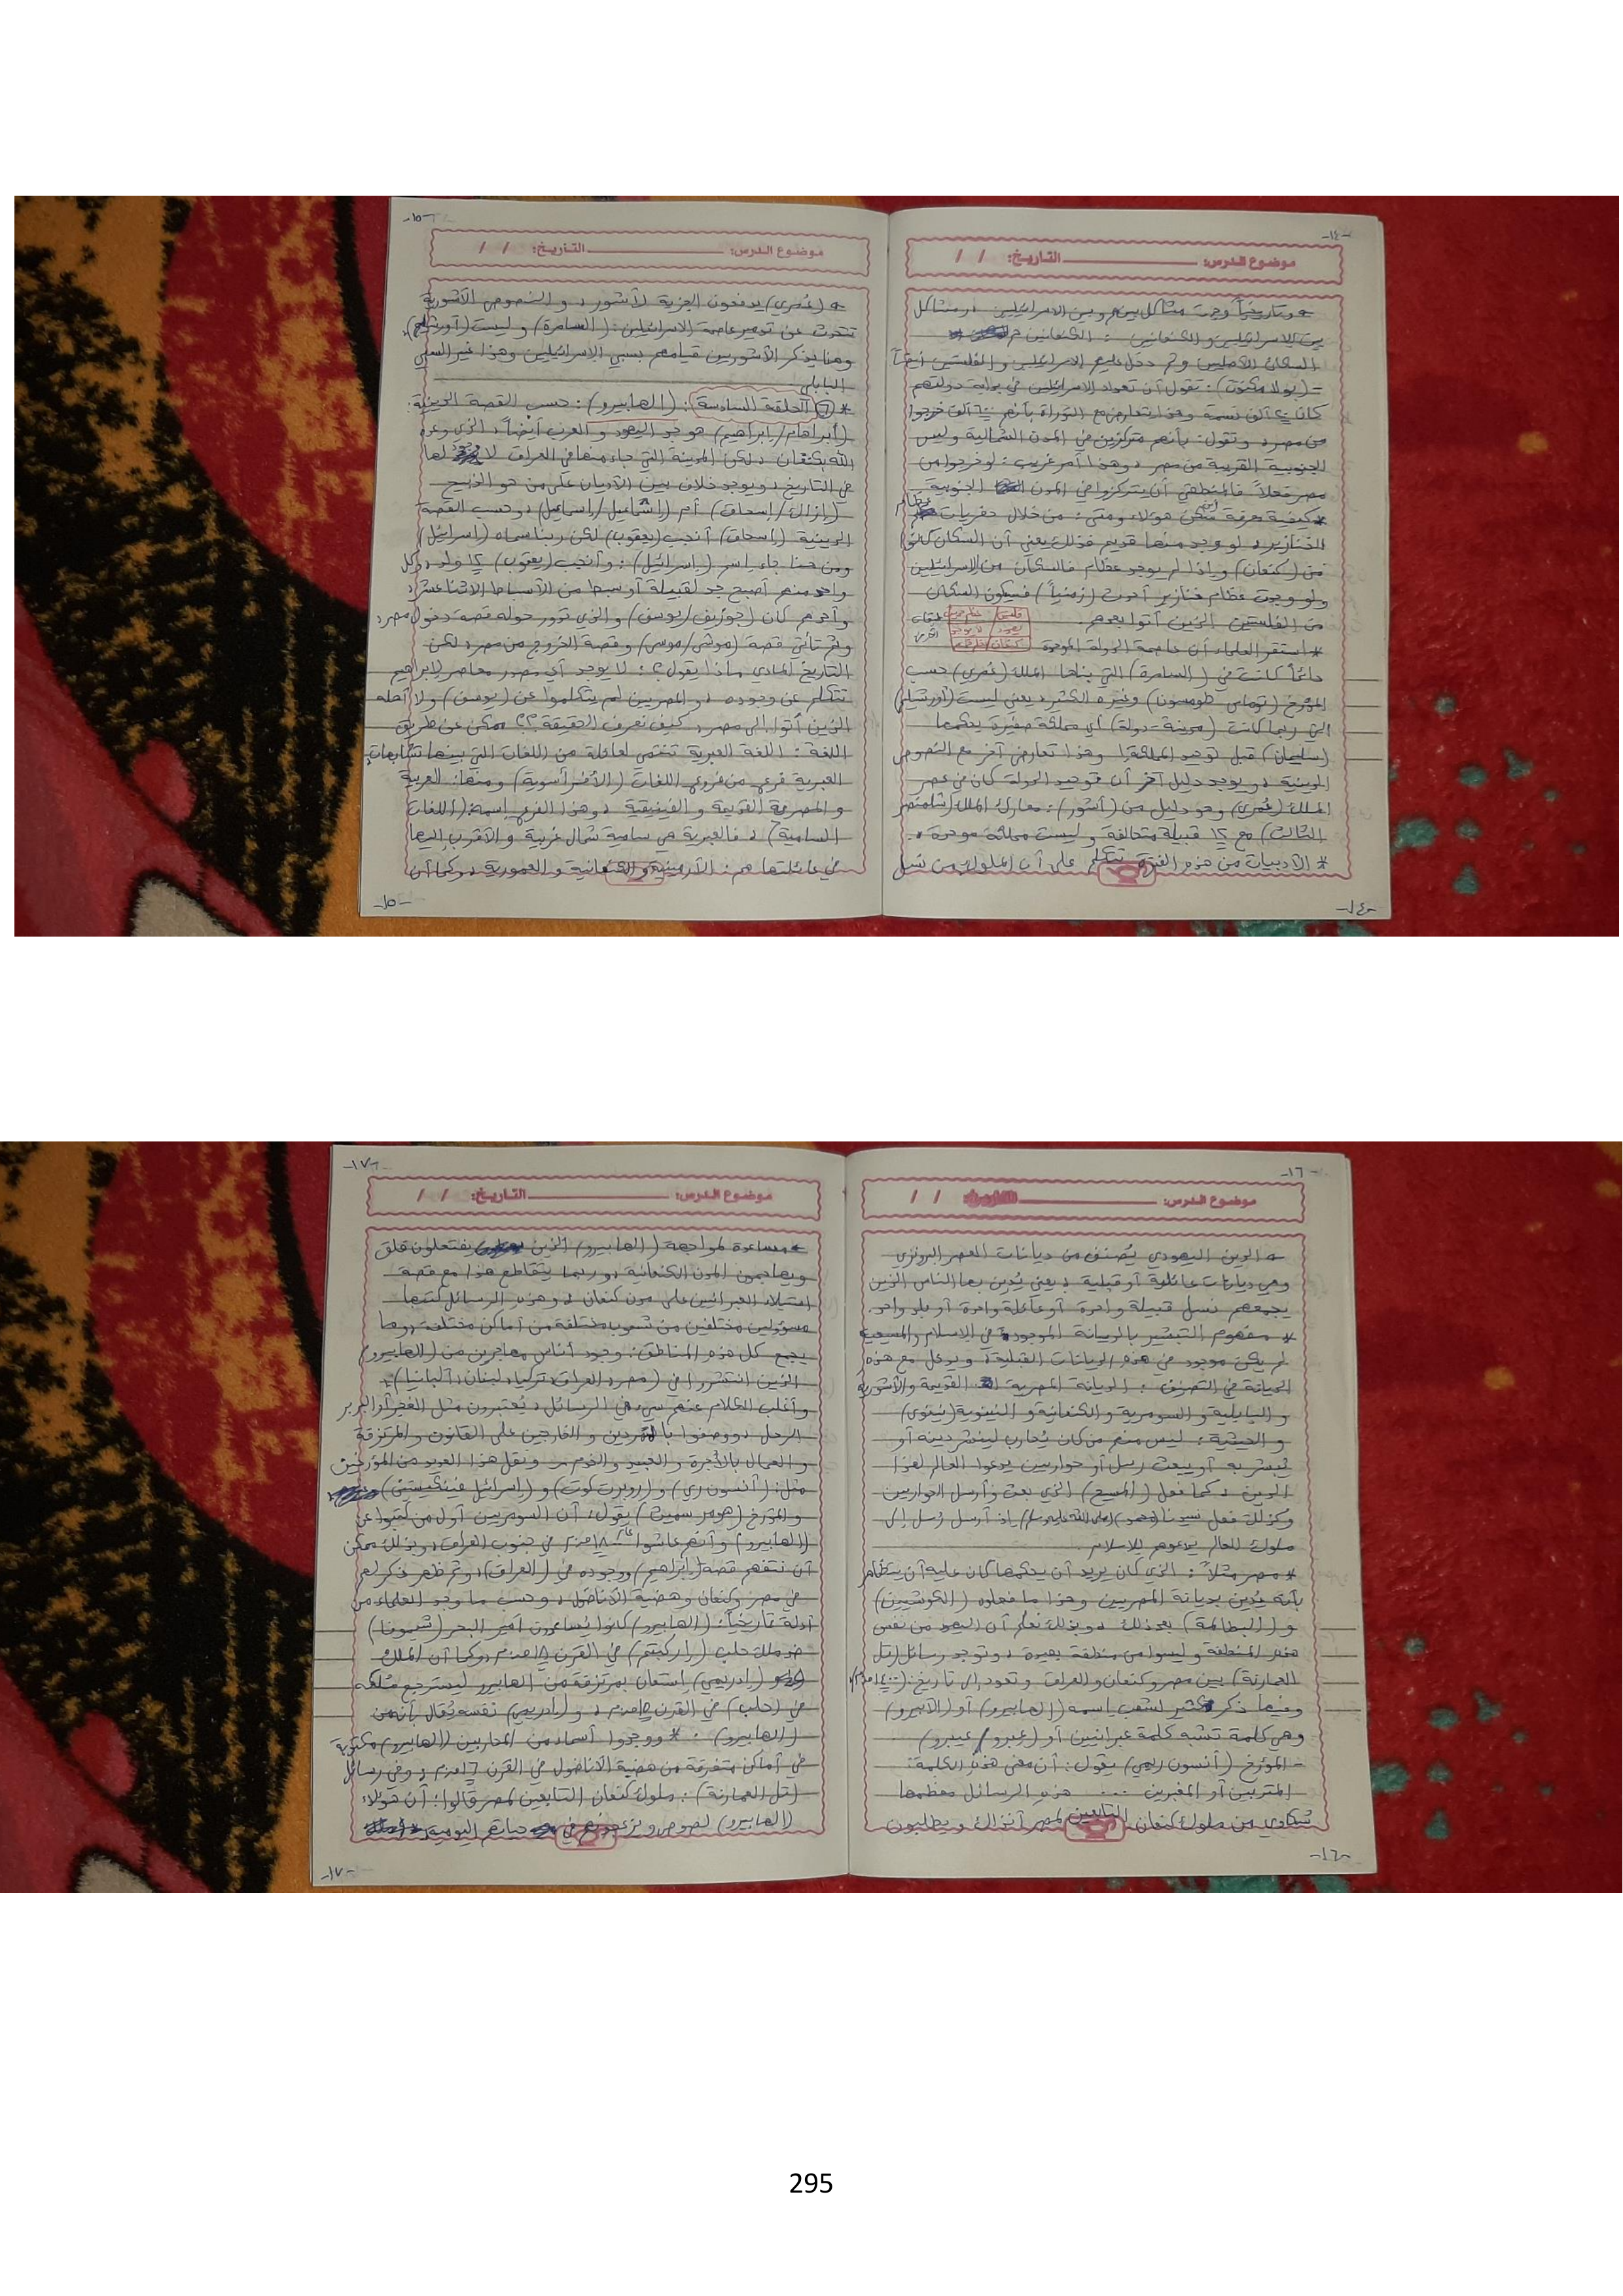 -١٤-
موضوع الدرس: التاريخ: / /
وتاريخياً وجدت مشاكل بينهم وبين الاسرائيليين و مشاكل
بين الاسرائيليين و الكنعانيين : الكنعانيين هم
السكان الأصليين وثم دخل عليهم الاسرائيليين و الفلستيين أيضاً
كانت ٢٠ ألف نسمة وهذا يتعارض مع التوراة بأنهم ٦٠٠ ألف خرجوا
من مصر، وتقول: بأنهم متركزين في المدن الشمالية وليس
الجنوبية القريبة من مصر، وهذا أمر غريب: لو خرجوا من
مصر فعلاً فالمنطقي أن يتركزوا في المدن الجنوبية
*كيفية معرفة من سكن هؤلاء ومتى: من خلال حفريات عظام
الخنازير، لو وجد منها قديم فذلك يعني أن السكان كانوا
من (كنعان) وإذا لم يوجد عظام فالسكان من الإسرائيليين
ولو وجدت عظام خنازير أحدث (زمنياً) فسيكون السكان
من الفلستيين الذين أتوا بعدهم.
* استقر العلماء أن عاصمة الدولة الموحدة
دائماً كانت في (السامرة) التي بناها الملك (عُمري) حسب
المؤرخ (توماس طومسون) وغيره الكثير، يعني ليست (أورشليم)
التي ربما كانت (مدينة-دولة) أي مملكة صغيرة يحكمها
(سليمان) قبل توحيد المملكة! وهذا تعارض آخر مع النصوص
الدينية، ويوجد دليل آخر أن توحيد الدولة كان في عصر
الملك (عُمري) وهو دليل من (أشور): معارك الملك (شلمنصر
الثالث) مع ١٢ قبيلة متحالفة وليست مملكة موحدة.
* الأدبيات من هذه الفترة تتكلم على أن الملوك من نسل
-١٤-
-١٥-
موضوع الدرس: التاريخ: / /
(عُمري) يدفعون الجزية لأشور، و النصوص الأشورية
تتحدث عن تدمير عاصمة الاسرائيليين: (السامرة) و ليست (أورشليم)،
وهنا يذكر الأشوريين قيامهم بسبي الإسرائيليين وهذا غير السبي
البابلي
* ٦ الحلقة السادسة: (الهابيرو): حسب القصة الدينية:
(أبراهام/إبراهيم) هو جد اليهود و العرب أيضاً، الذي وعده
الله بكنعان، لكن المدينة التي جاء منها في العراق لا وجود لها
في التاريخ، ويوجد خلاف بين الأديان على من هو الذبيح
(إزاك/إسحاق) أم (إشمايل/إسماعيل)، وحسب القصة
الدينية (إسحاق) أنجب (يعقوب) لكن ربنا سماه (إسرائيل)
ومن هنا جاء اسم (إسرائيل): وأنجب (يعقوب) ١٢ ولد، وكل
واحد منهم أصبح جد لقبيلة أو سبط من الأسباط الاثنا عشر،
وأحدهم كان (جوزيف/يوسف) والذي تدور حوله قصة دخول مصر،
وثم تأتي قصة (موشى/موسى) وقصة الخروج من مصر، لكن
التاريخ المادي ماذا يقول؟: لا يوجد أي مصدر معاصر لإبراهيم
تتكلم عن وجوده، و المصريين لم يتكلموا عن (يوسف) ولا أهله
الذين أتوا إلى مصر، كيف نعرف الحقيقة؟؟ ممكن عن طريق
اللغة: اللغة العبرية تنتمي لعائلة من اللغات التي بينها تشابهات
العبرية فرع من فروع اللغات (الأفرآسوية) ومنها: العربية
و المصرية القديمة و الفينيقية، وهذا الفرع إسمه: (اللغات
السامية)، فالعبرية هي سامية شمال غربية والأقرب إليها
في عائلتها هم: الآرامية و الكنعانية و العمورية، وكما أن
-١٥-
-١٦-
موضوع الدرس: / /
الدين اليهودي يُصنف من ديانات العصر البرونزي
وهي ديانات عائلية أو قبلية، يعني يُدين بها الناس الذين
يجمعهم نسل قبيلة واحدة أو عائلة واحدة أو بلد واحد.
* مفهوم التبشير بالديانة الموجودة في الإسلام والمسيحية
لم يكن موجود في هذه الديانات القبلية، ويدخل مع هذه
الديانة في التصنيف: الديانة المصرية القديمة والأشورية
و البابلية و السومرية و الكنعانية و النينوية (نينوى)
و الحيثية: ليس منهم من كان يُحارب لينشر دينه أو
يُبشر به أو يبعث رسل أو حواريين يدعوا العالم لهذا
الدين، كما فعل (المسيح) الذي بعث وأرسل الحواريين
وكذلك فعل نبينا (محمد) (صلى الله عليه وسلم) إذ أرسل رُسل إلى
ملوك العالم يدعوهم للإسلام.
* مصر مثلاً: الذي كان يريد أن يحكمها كان عليه أن يتظاهر
بأنه يُدين بديانة المصريين وهذا ما فعلوه (الكوشيين)
و (البطالمة) بعد ذلك، وبذلك نعلم أن اليهود من نفس
هذه المنطقة و ليسوا من منطقة بعيدة، وتوجد رسائل (تل
العمارنة) بين مصر وكنعان والعراق وتعود إلى تاريخ:
وفيها ذكر كثير لشعب إسمه (الهابيرو) أو (الأبيرو)
وهي كلمة تشبه كلمة عبرانيين أو (عِبرو/عيبرو)
- المؤرخ (أنسون ريني) يقول: أن معنى هذه الكلمة:
المتربين أو المغبرين ... هذه الرسائل معظمها
شكاوي من ملوك كنعان التابعين لمصر آنذاك و يطلبون
-١٦-
-١٧-
موضوع الدرس: التاريخ: / /
مساعدة لمواجهة (الهابيرو) الذين يفتعلون قلق
ويهاجمون المدن الكنعانية، وربما يتقاطع هذا مع قصة
استيلاء العبرانيين على مدن كنعان، وهذه الرسائل كتبها
مسؤولين مختلفين من شعوب مختلفة من أماكن مختلفة، وما
يجمع كل هذه المناطق: وجود أناس مهاجرين من (الهابيرو)
وأغلب الكلام عنهم سيء في الرسائل، يُعتبرون مثل الغجر أو البربر
الرحل، ووصفوا بالمتمردين و الخارجين على القانون و المرتزقة
و العمال بالأجرة و العبيد والخدم، ونقل هذا العديد من المؤرخين
مثل: (أنسون ري) و (روبرت كوت) و (إسرائيل فينكيلستين)
والمؤرخ (هومر سميث) يقول: أن السومريين أول من كتبوا عن
أن نتفهم قصة (إبراهيم) ووجوده في (العراق)، وثم ظهر ذكر لهم
في مصر وكنعان وهضبة الأناضول، وحسب ما وجد العلماء من
أدلة تاريخياً: (الهابيرو) كانوا يُساعدون أمير البحر (شيمونا)
(إدريمي) إستعان بمرتزقة من الهابيرو ليسترجع مُلكه
(الهابيرو): * ووجدوا أسماء من المحاربين (الهابيرو) مكتوبة
(تل العمارنة): ملوك كنعان التابعين لمصر قالوا: أن هؤلاء
(الهابيرو) لصوص ويزعجونهم في حياتهم اليومية،
-١٧-
295